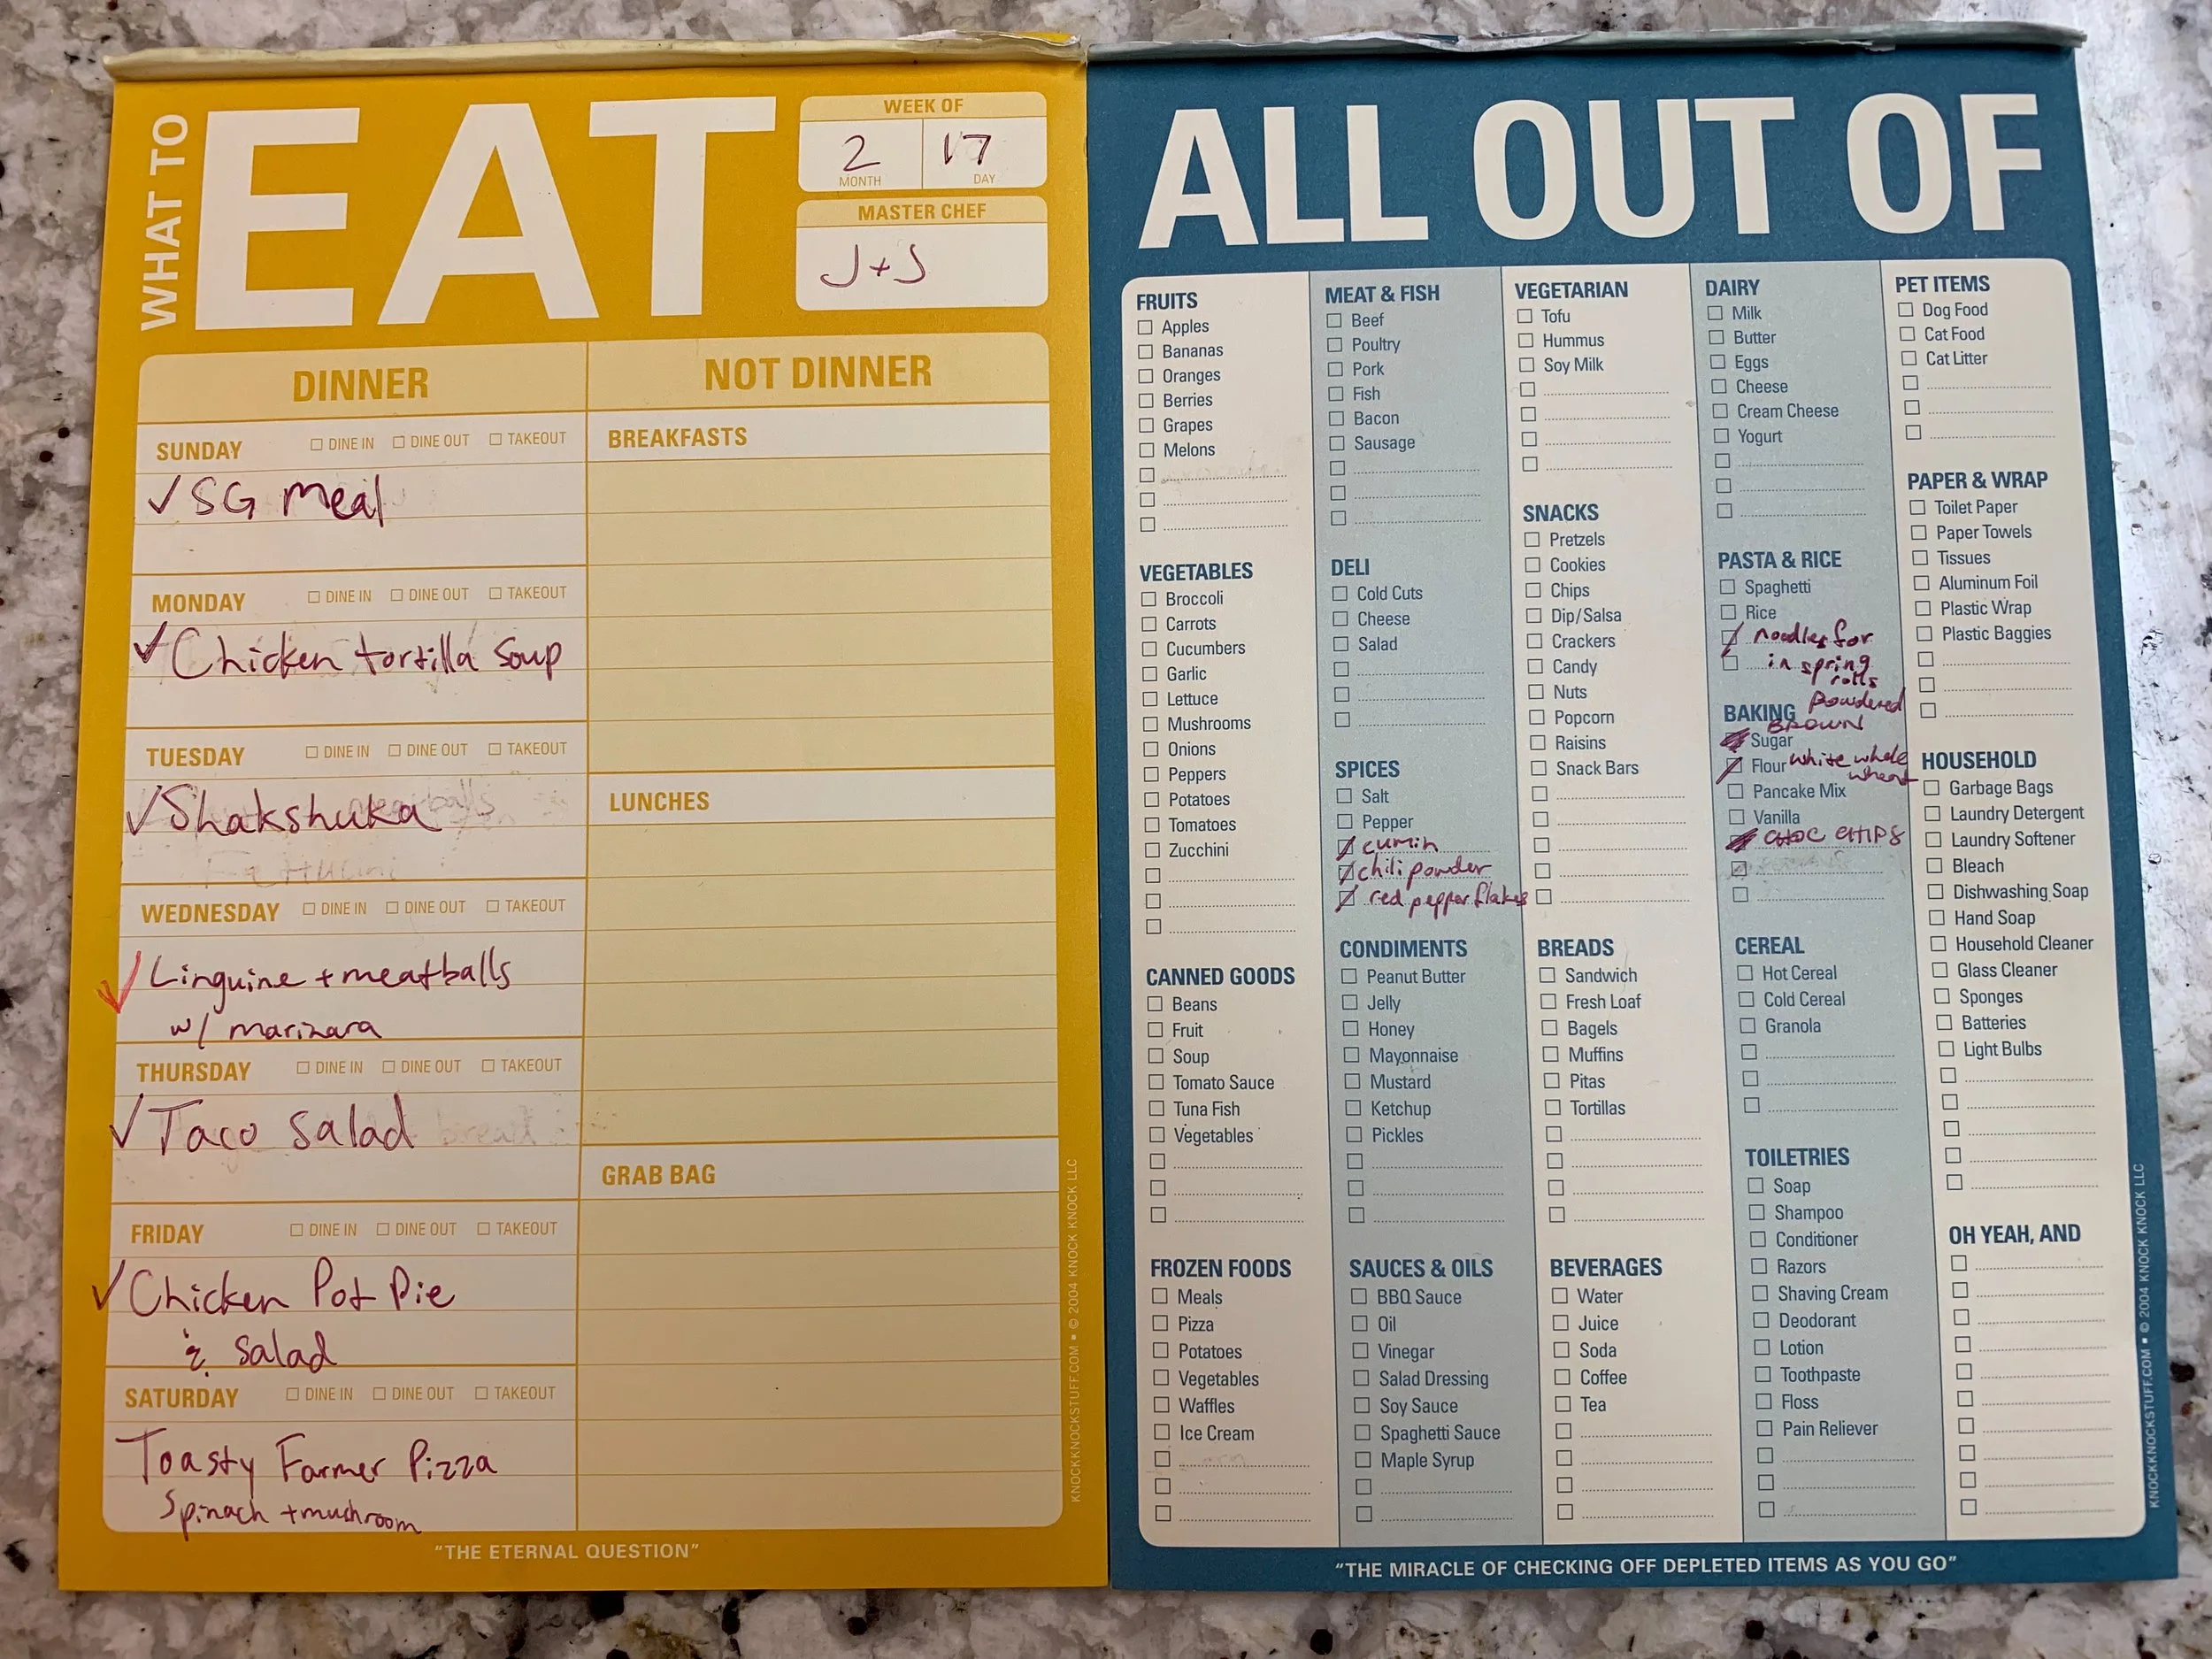 WHAT TO
EAT
WEEK OF
2 17
MONTH DAY
MASTER CHEF
J + J
DINNER
NOT DINNER
SUNDAY DINE IN DINE OUT TAKEOUT
✓ SG meal
MONDAY DINE IN DINE OUT TAKEOUT
✓ Chicken tortilla soup
TUESDAY DINE IN DINE OUT TAKEOUT
✓ Shakshuka
WEDNESDAY DINE IN DINE OUT TAKEOUT
✓ Linguine + meatballs
w/ marinara
THURSDAY DINE IN DINE OUT TAKEOUT
✓ Taco salad
FRIDAY DINE IN DINE OUT TAKEOUT
✓ Chicken Pot Pie
& salad
SATURDAY DINE IN DINE OUT TAKEOUT
Toasty Farmer Pizza
Spinach + mushroom
BREAKFASTS
LUNCHES
GRAB BAG
"THE ETERNAL QUESTION"
KNOCKKNOCKSTUFF.COM ▪ © 2004 KNOCK KNOCK LLC
ALL OUT OF
FRUITS
Apples
Bananas
Oranges
Berries
Grapes
Melons
VEGETABLES
Broccoli
Carrots
Cucumbers
Garlic
Lettuce
Mushrooms
Onions
Peppers
Potatoes
Tomatoes
Zucchini
CANNED GOODS
Beans
Fruit
Soup
Tomato Sauce
Tuna Fish
Vegetables
FROZEN FOODS
Meals
Pizza
Potatoes
Vegetables
Waffles
Ice Cream
MEAT & FISH
Beef
Poultry
Pork
Fish
Bacon
Sausage
DELI
Cold Cuts
Cheese
Salad
SPICES
Salt
Pepper
cumin
chili powder
red pepper flakes
CONDIMENTS
Peanut Butter
Jelly
Honey
Mayonnaise
Mustard
Ketchup
Pickles
SAUCES & OILS
BBQ Sauce
Oil
Vinegar
Salad Dressing
Soy Sauce
Spaghetti Sauce
Maple Syrup
VEGETARIAN
Tofu
Hummus
Soy Milk
SNACKS
Pretzels
Cookies
Chips
Dip/Salsa
Crackers
Candy
Nuts
Popcorn
Raisins
Snack Bars
BREADS
Sandwich
Fresh Loaf
Bagels
Muffins
Pitas
Tortillas
BEVERAGES
Water
Juice
Soda
Coffee
Tea
DAIRY
Milk
Butter
Eggs
Cheese
Cream Cheese
Yogurt
PASTA & RICE
Spaghetti
Rice
noodles for
in spring
rolls
powdered
BAKING BROWN
Sugar
Flour white whole
wheat
Pancake Mix
Vanilla
CHOC CHIPS
CEREAL
Hot Cereal
Cold Cereal
Granola
TOILETRIES
Soap
Shampoo
Conditioner
Razors
Shaving Cream
Deodorant
Lotion
Toothpaste
Floss
Pain Reliever
PET ITEMS
Dog Food
Cat Food
Cat Litter
PAPER & WRAP
Toilet Paper
Paper Towels
Tissues
Aluminum Foil
Plastic Wrap
Plastic Baggies
HOUSEHOLD
Garbage Bags
Laundry Detergent
Laundry Softener
Bleach
Dishwashing Soap
Hand Soap
Household Cleaner
Glass Cleaner
Sponges
Batteries
Light Bulbs
OH YEAH, AND
"THE MIRACLE OF CHECKING OFF DEPLETED ITEMS AS YOU GO"
KNOCKKNOCKSTUFF.COM ▪ © 2004 KNOCK KNOCK LLC